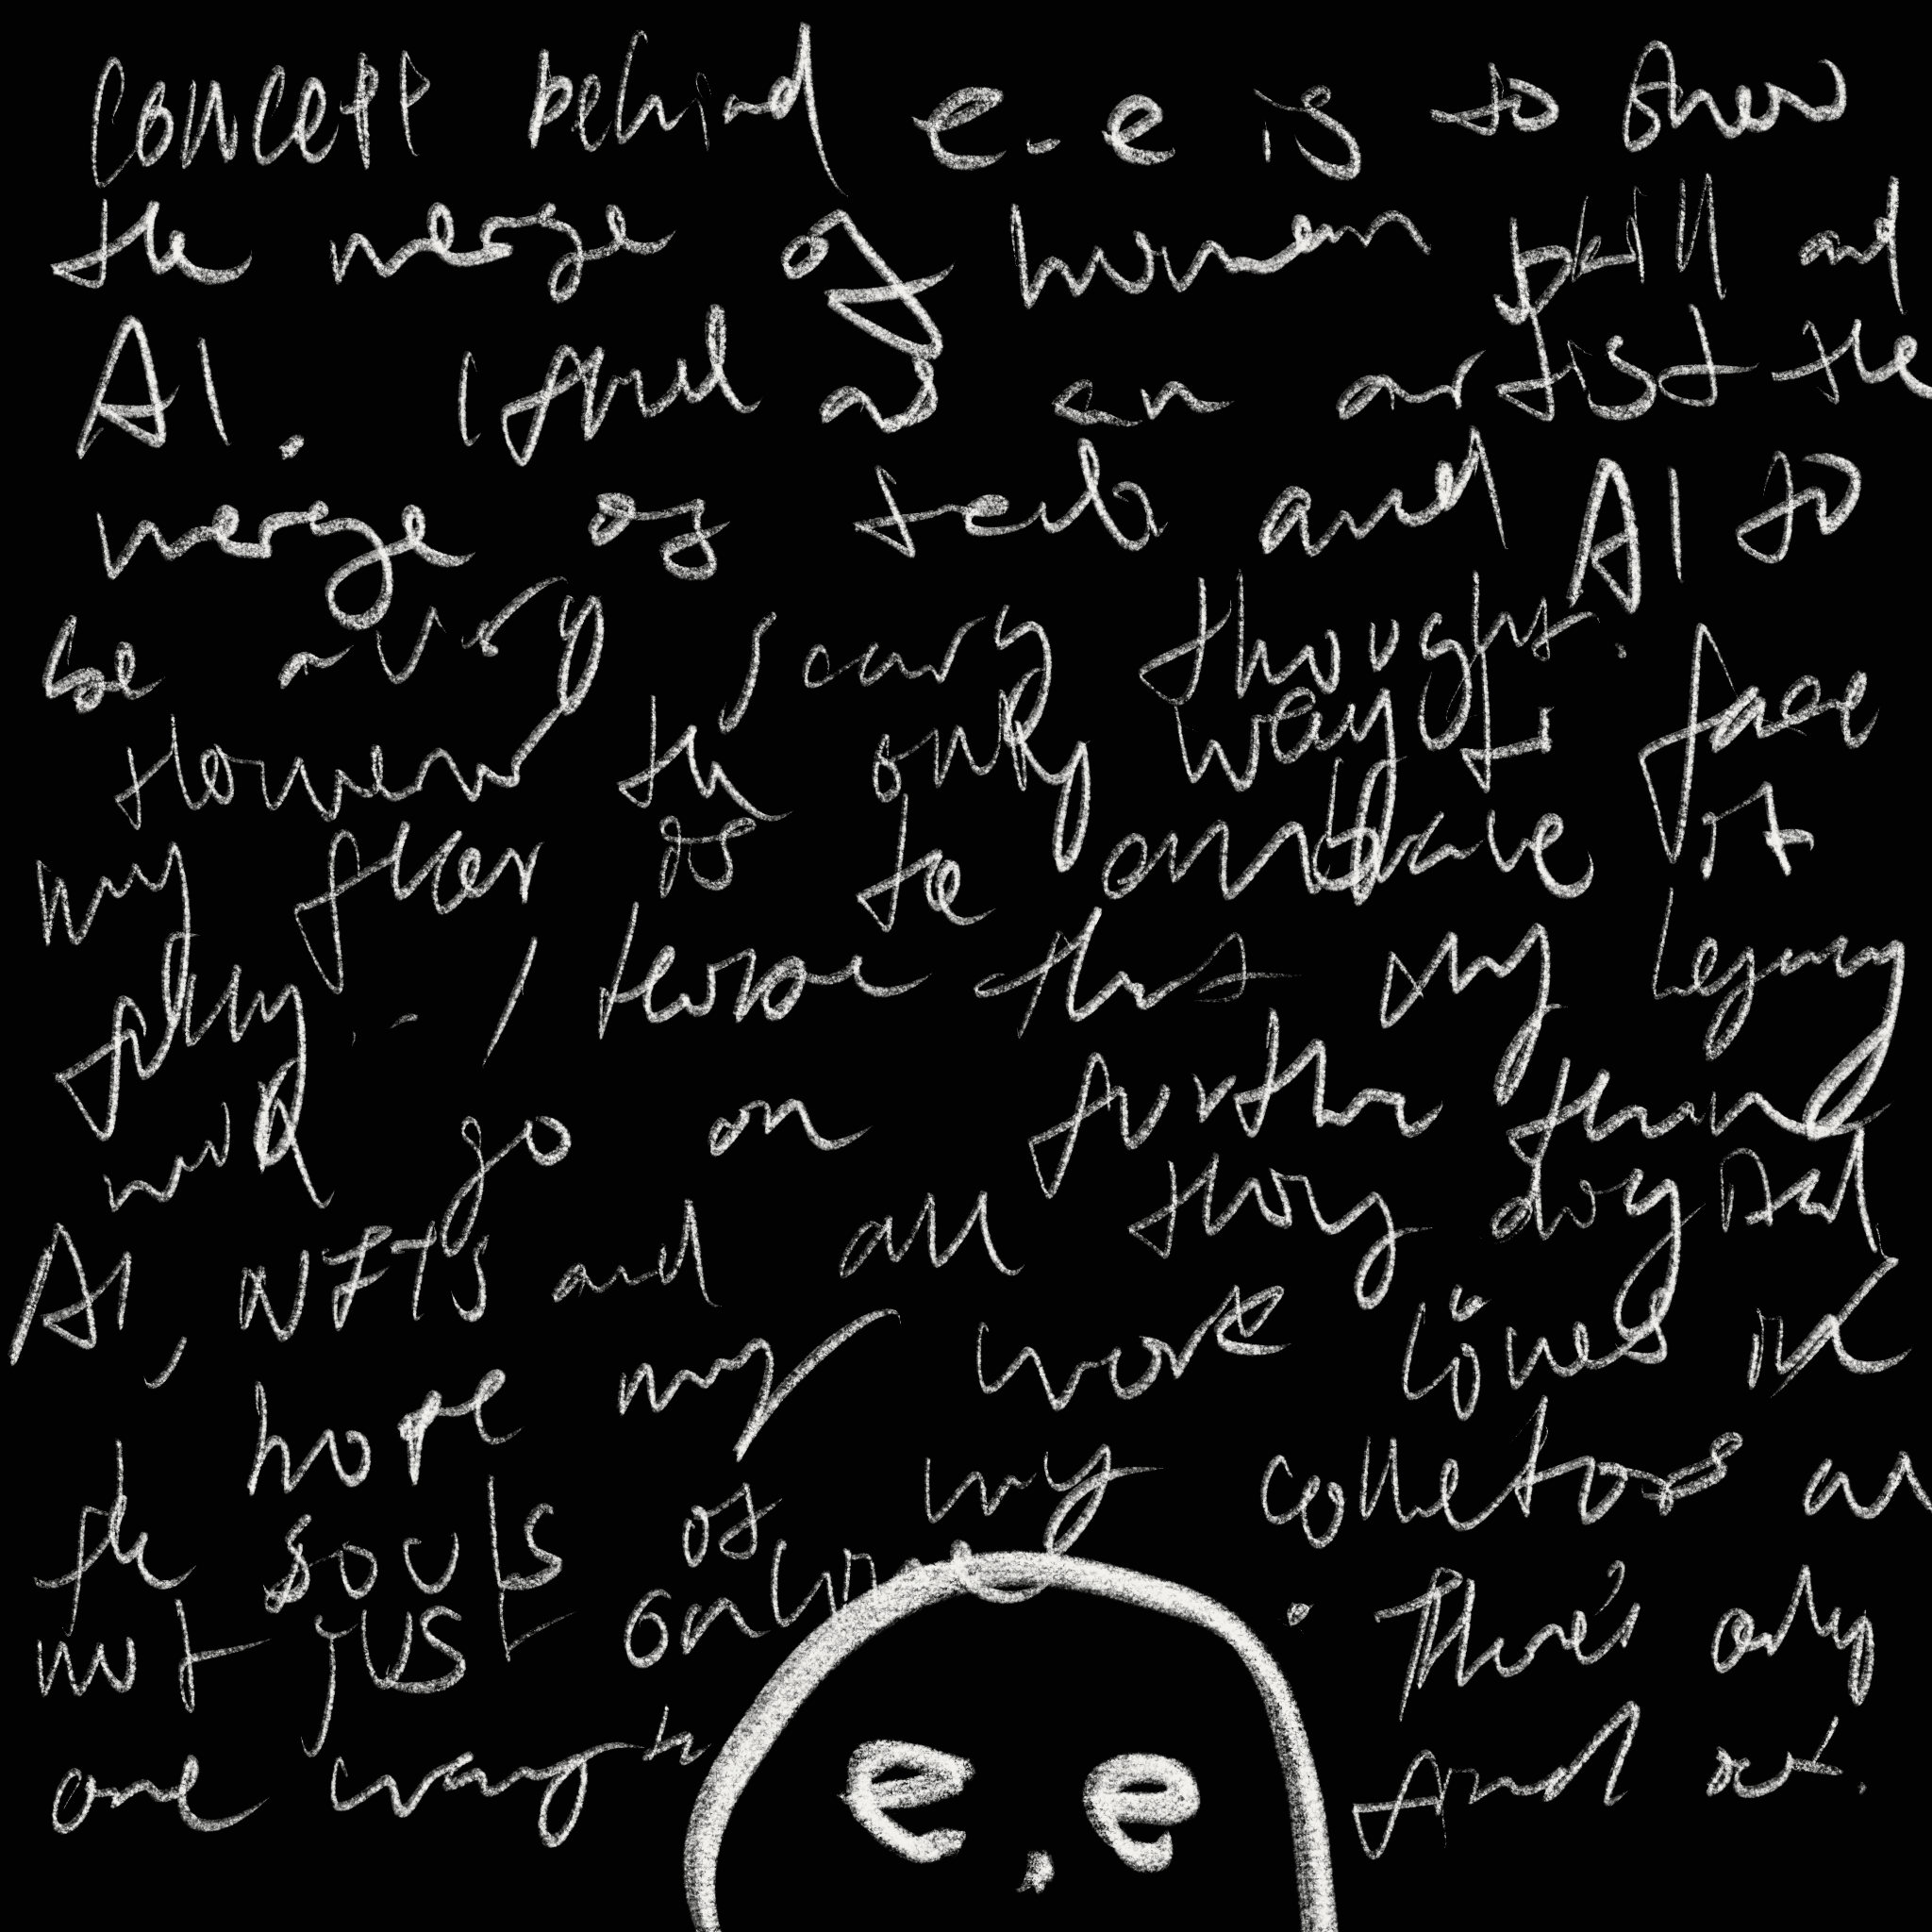 concept behind e.e is to show
the merge of human skill and
AI. I find as an artist the
merge of tech and AI to
be a very scary thought.
However the only way to face
my fear is to embrace it
fully... I hope that my legacy
will go on further than
AI, NFTs and all things digital
hope my work lives in
the souls of my collectors and
not just online. There's only
one way to find out.
e.e